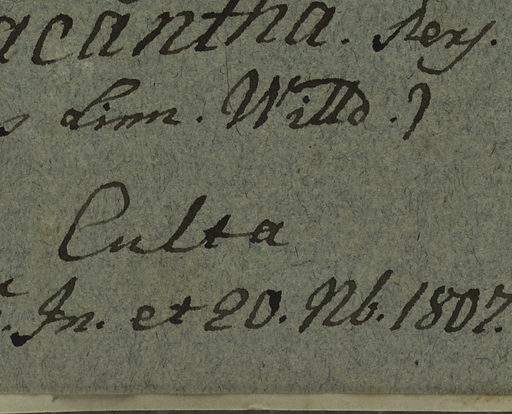 acantha. Pers.
s Linn. Willd.)
Culta
. Jn. et 20. Nb. 1807.